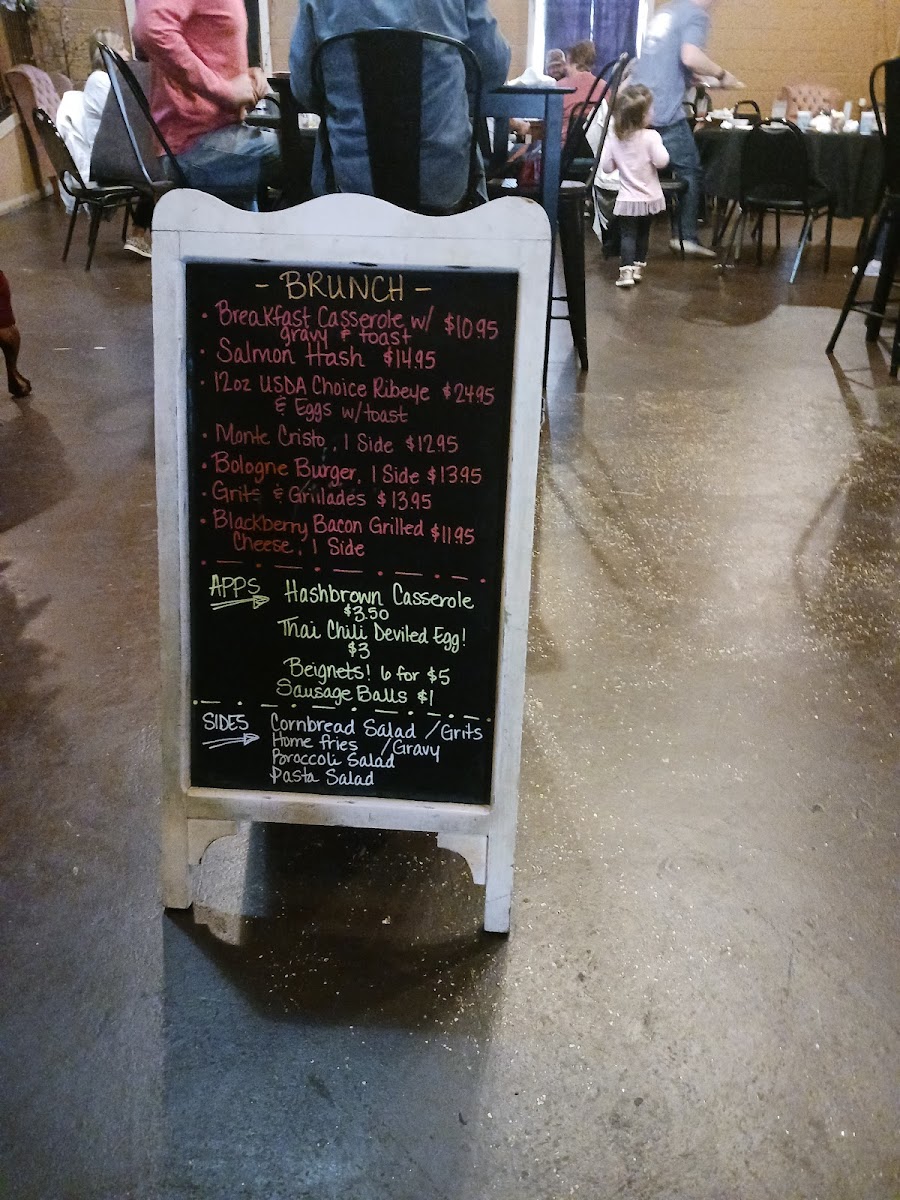 - BRUNCH -
• Breakfast Casserole w/ $10.95
gravy & toast
• Salmon Hash $14.95
• 12oz USDA Choice Ribeye $24.95
& Eggs w/toast
• Monte Cristo, 1 Side $12.95
• Bologne Burger, 1 Side $13.95
• Grits & Grillades $13.95
• Blackberry Bacon Grilled $11.95
Cheese, 1 Side
APPS Hashbrown Casserole
$3.50
Thai Chili Deviled Egg!
$3
Beignets! 6 for $5
Sausage Balls $1
SIDES Cornbread Salad / Grits
Home fries / Gravy
Broccoli Salad
Pasta Salad